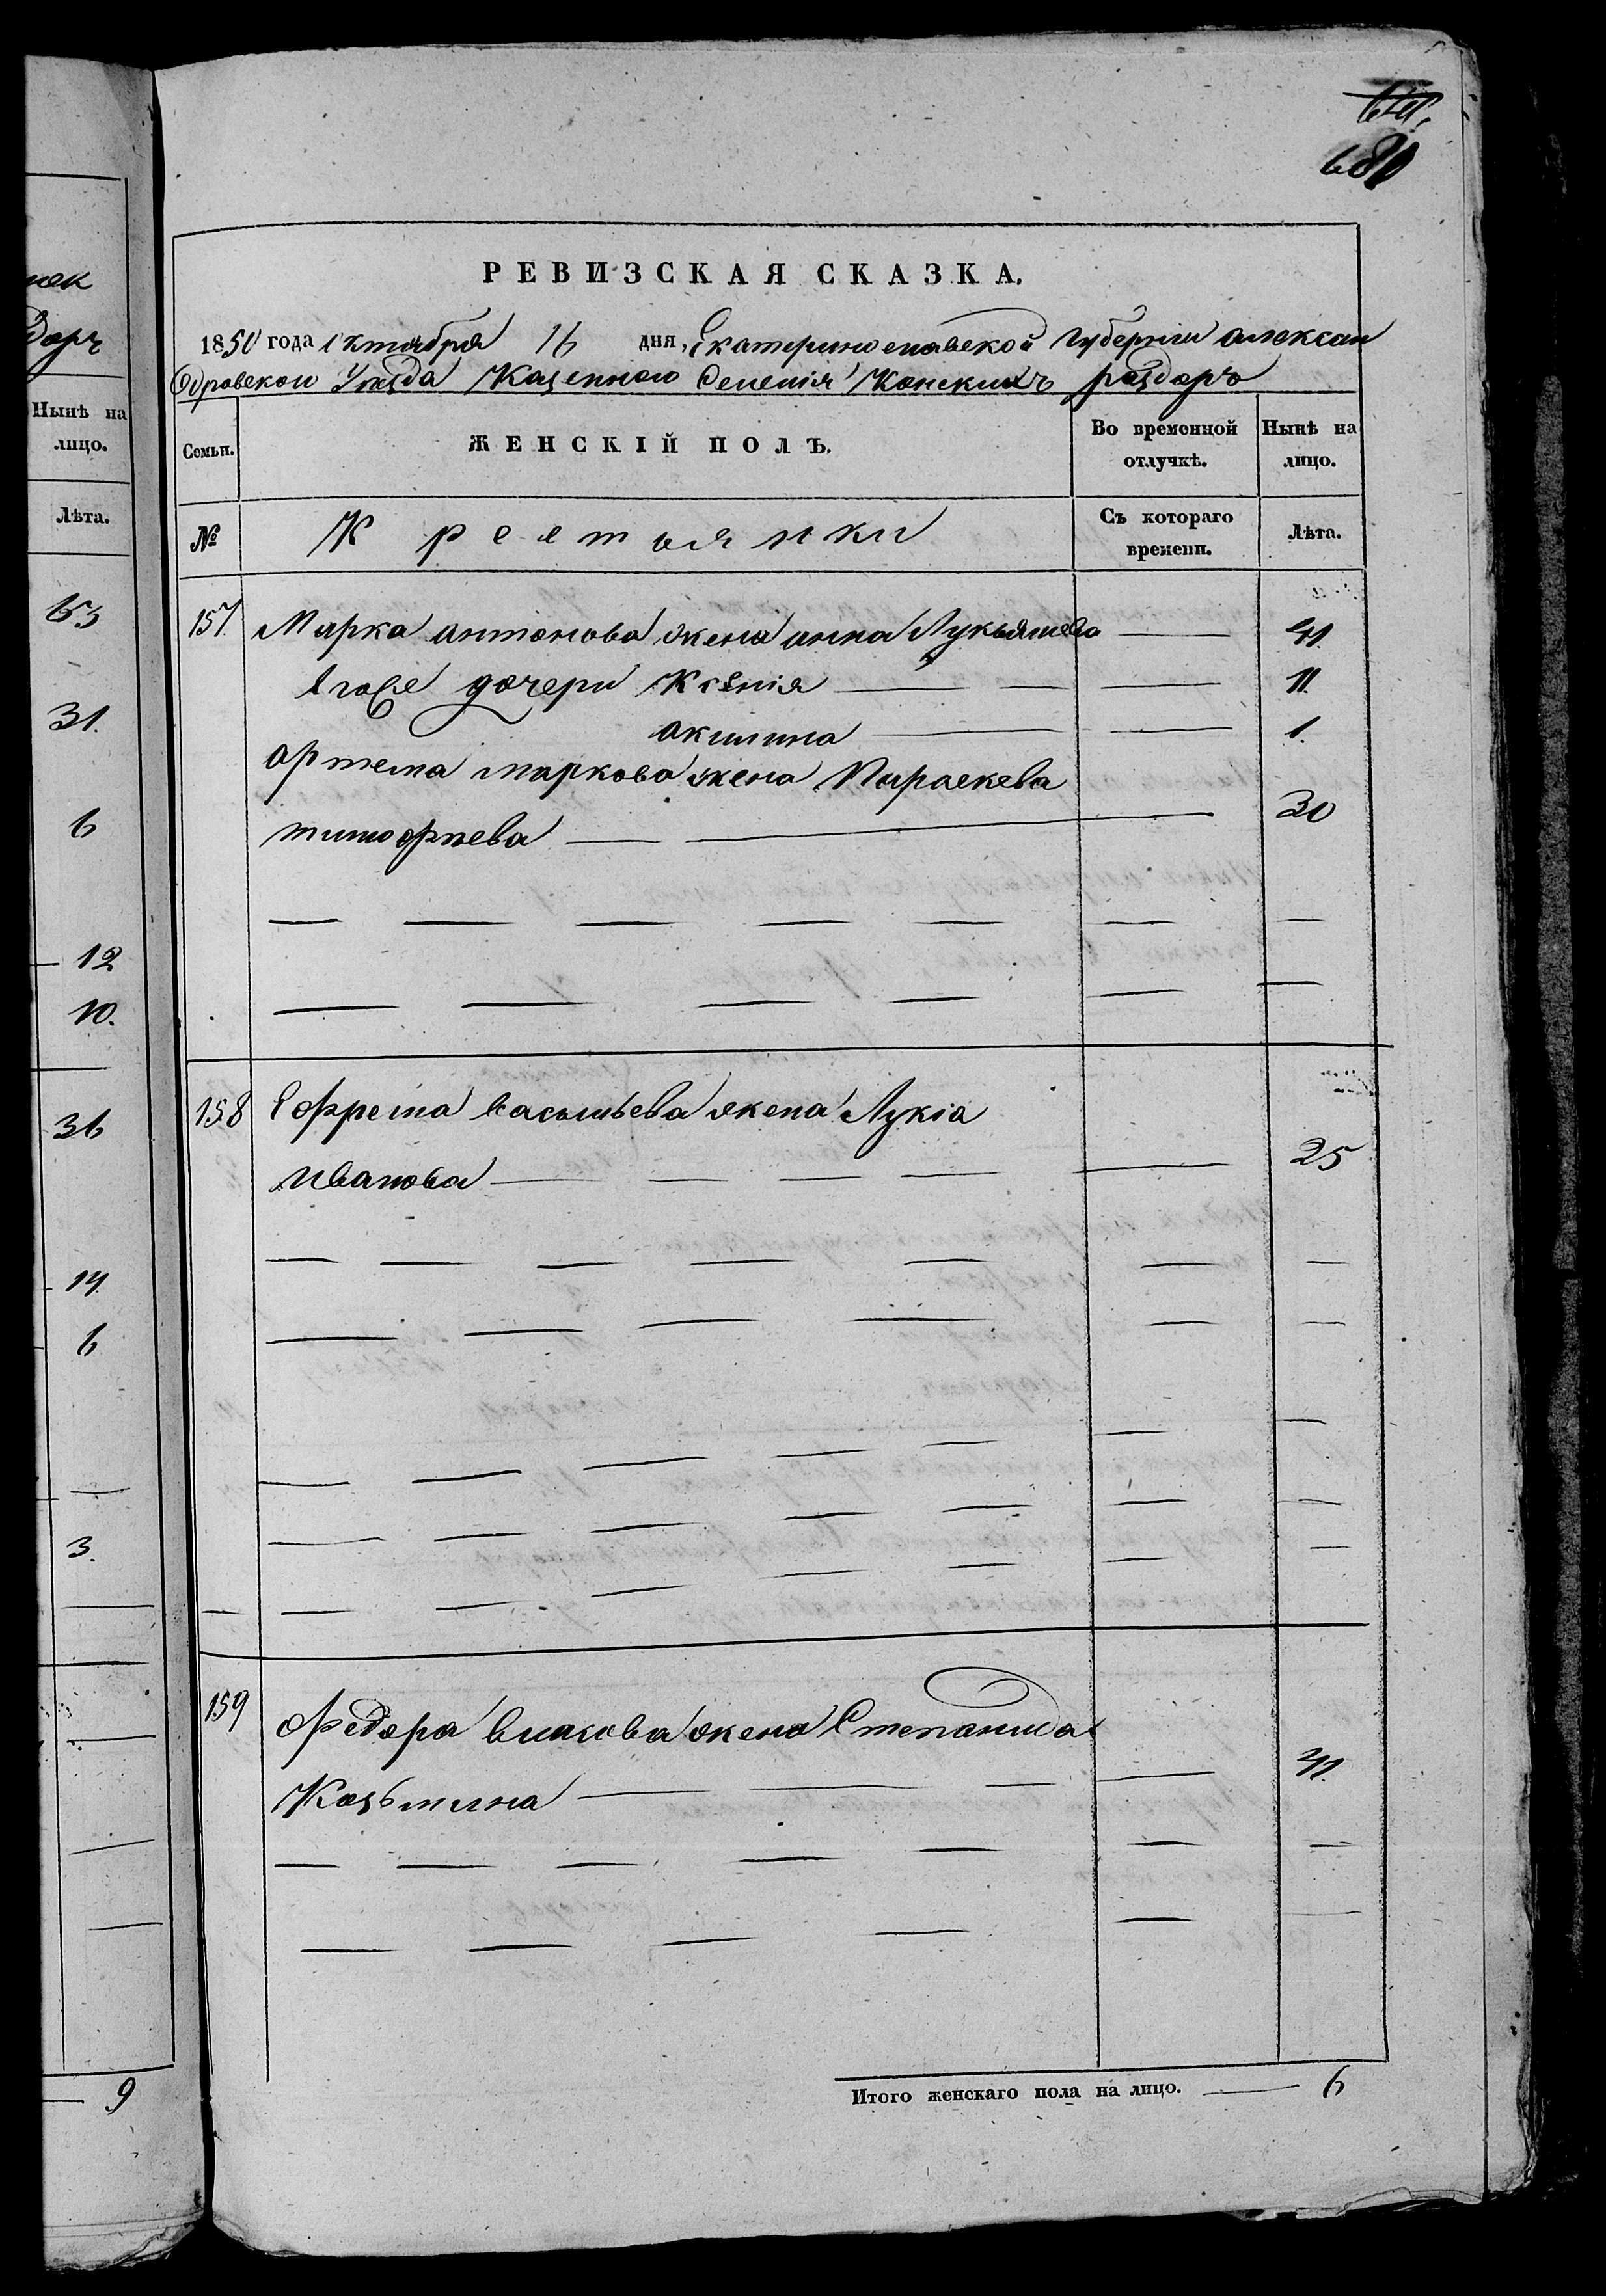 нек
доръ
Нынѣ на
лицо.
Лѣта.
63
31.
6
12
10.
36
14.
6
3.
9
680
РЕВИЗСКАЯ СКАЗКА.
1850 года октября 16 дня, Екатеринославской губерніи Алексан
дровскаго Уѣзда Казеннаго Селенія Конскихъ раздоръ
Семьи. ЖЕНСКІЙ ПОЛЪ. Во временной отлучкѣ. Нынѣ на лицо.
№ Крестьянки Съ котораго времени. Лѣта.
157. Марка антонова жена анна Лукьянова 41.
Его же дочери Ксенія 11.
акилина 1.
артема маркова жена Параскева
тимофѣева 30
158 Ефрема васильева жена Лукія
Иванова 25
159 Федора власова жена Степанида
Козьмина 41.
Итого женскаго пола на лицо. 6